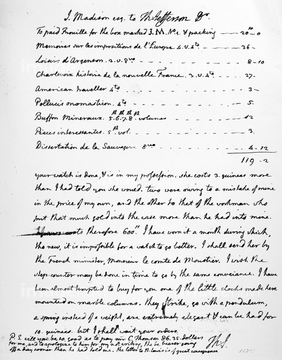 J. Madison esq. to Th: Jefferson Dr.
To paid Frouille for the box marked I.M. No. 1. & packing 20-0
Memoires sur les impositions de l'Europe. 4.v. 4to 36-
Loisirs d'Argenson. 2.v. 8vo 8-10
Charlevoix histoire de la nouvelle France. 3.v. 4to 27-
American traveller 4to 3-
Pollucis onomasticon. 4to 5.
Buffon Mineraux. 5.6.7.8. volumes 12
Pieces interessantes. 5th vol. 3.
Dissertation de la Sauvagere 8vo 4-12
119-2
your watch is done, & is in my possession. she costs 2. guineas more
than I had told you she would. two were owing to a mistake of mine
in the price of my own, and the other to that of the workman who
put that much gold into the case more than he had into mine.
costs therefore 600.ll I have worn it a month during which,
tho new, it is impossible for a watch to go better. I shall send her by
the French minister, Monsieur le comte de Moustier. I wish the
step-counter may be done in time to go by the same conveiance. I have
been almost tempted to buy for you one of the little clocks made here
mounted on marble columns. they strike, go with a pendulum,
a spring instead of a weight, are extremely elegant & can be had for
10. guineas. but I shall wait your orders.
Th: J.
P.S. will you be so good as to pay mr C. Thomson dollars
for me, and to apologize to him for my not writing.